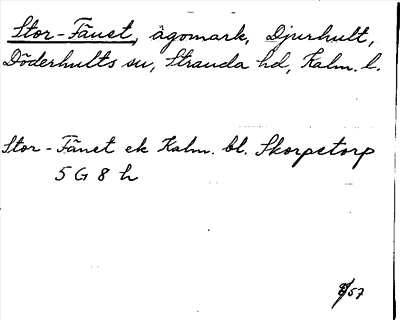 Stor-Fänet, ägomark, Djurhult,
Döderhults sn, Stranda hd, Kalm. l.
Stor-Fänet ek Kalm. bl. Skorpetorp
5 G 8 h
8/57